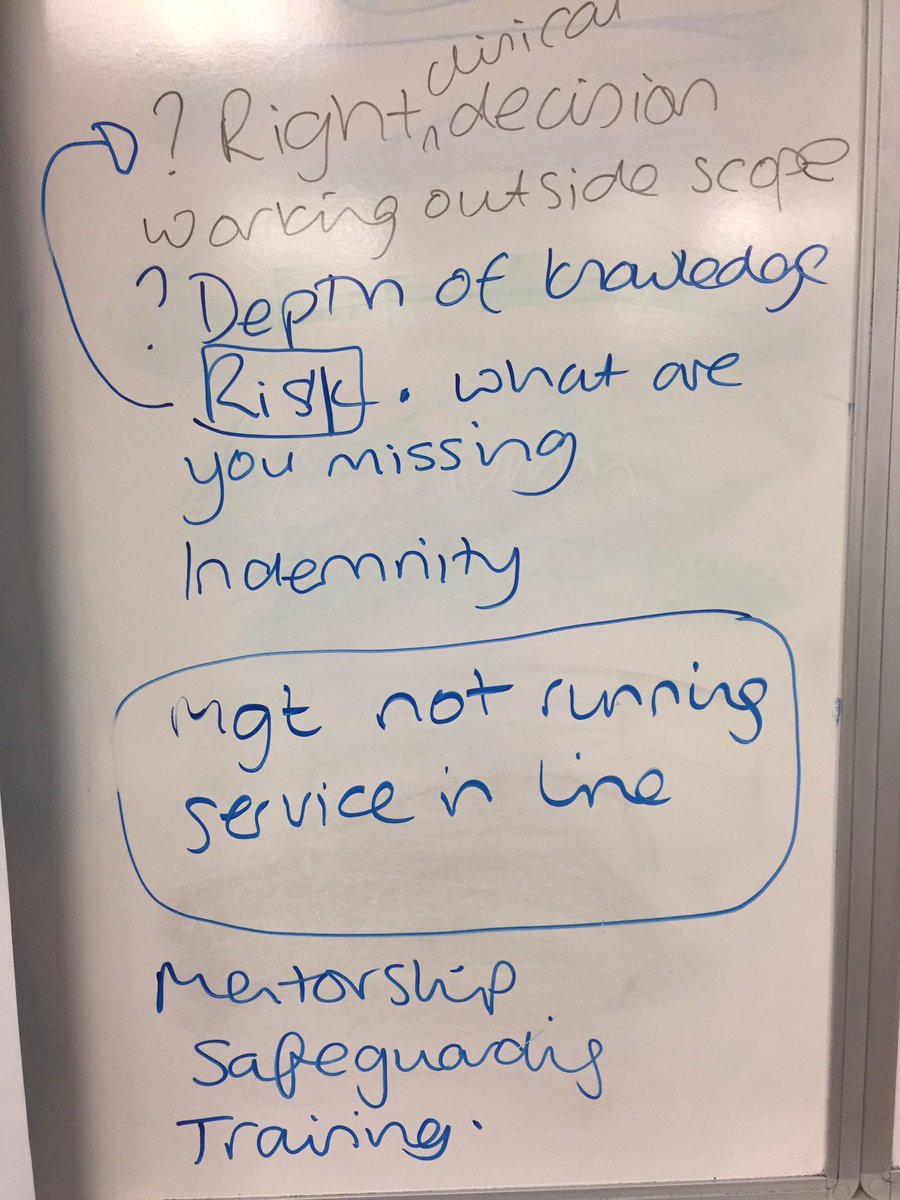 ? Right clinical decision
working outside scope
? Depth of knowledge
Risk. what are
you missing
Indemnity
Mgt not running
service in line
Mentorship
Safeguarding
Training.